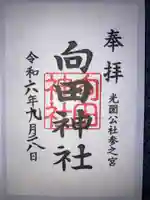 奉拝
光圀公社参之宮
向田神社
令和六年九月二八日